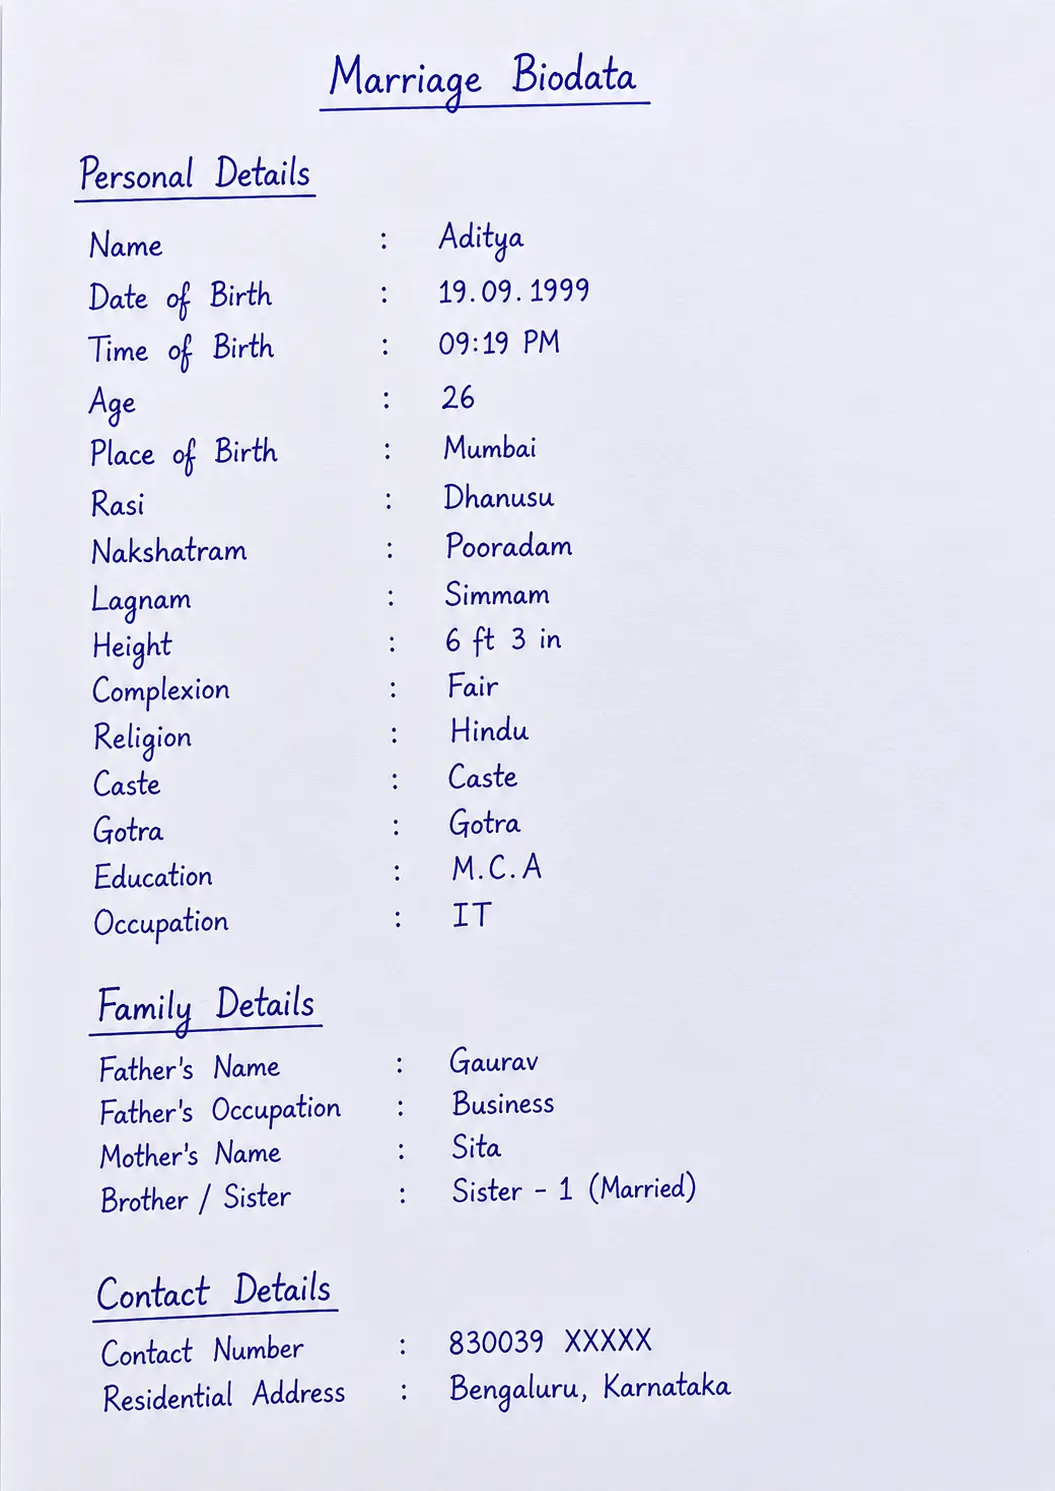 Marriage Biodata
Personal Details
Name : Aditya
Date of Birth : 19.09.1999
Time of Birth : 09:19 PM
Age : 26
Place of Birth : Mumbai
Rasi : Dhanusu
Nakshatram : Pooradam
Lagnam : Simmam
Height : 6 ft 3 in
Complexion : Fair
Religion : Hindu
Caste : Caste
Gotra : Gotra
Education : M.C.A
Occupation : IT
Family Details
Father's Name : Gaurav
Father's Occupation : Business
Mother's Name : Sita
Brother / Sister : Sister - 1 (Married)
Contact Details
Contact Number : 830039 XXXXX
Residential Address : Bengaluru, Karnataka